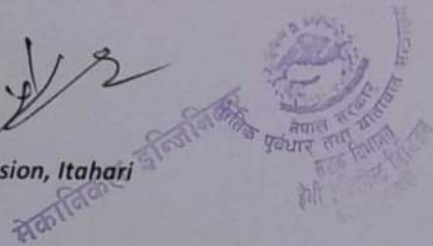 sion, Itahari
मेकानिकल इन्जिनियर
नेपाल सरकार
भौतिक पूर्वाधार तथा यातायात मन्त्रालय
सडक विभाग
हेभी